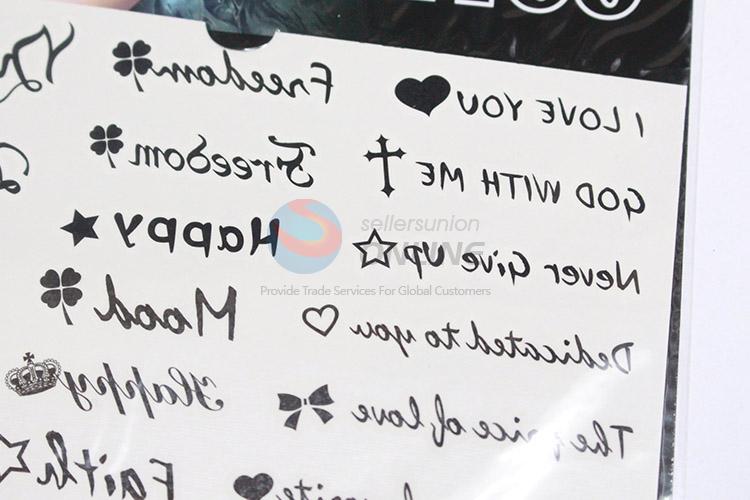 I LOVE YOU
GOD WITH ME
Never Give Up
Dedicated to you
The price of love
Freedom
Freedom
Happy
Mood
Happy
Faith
sellersunion
ONLINE
Provide Trade Services For Global Customers